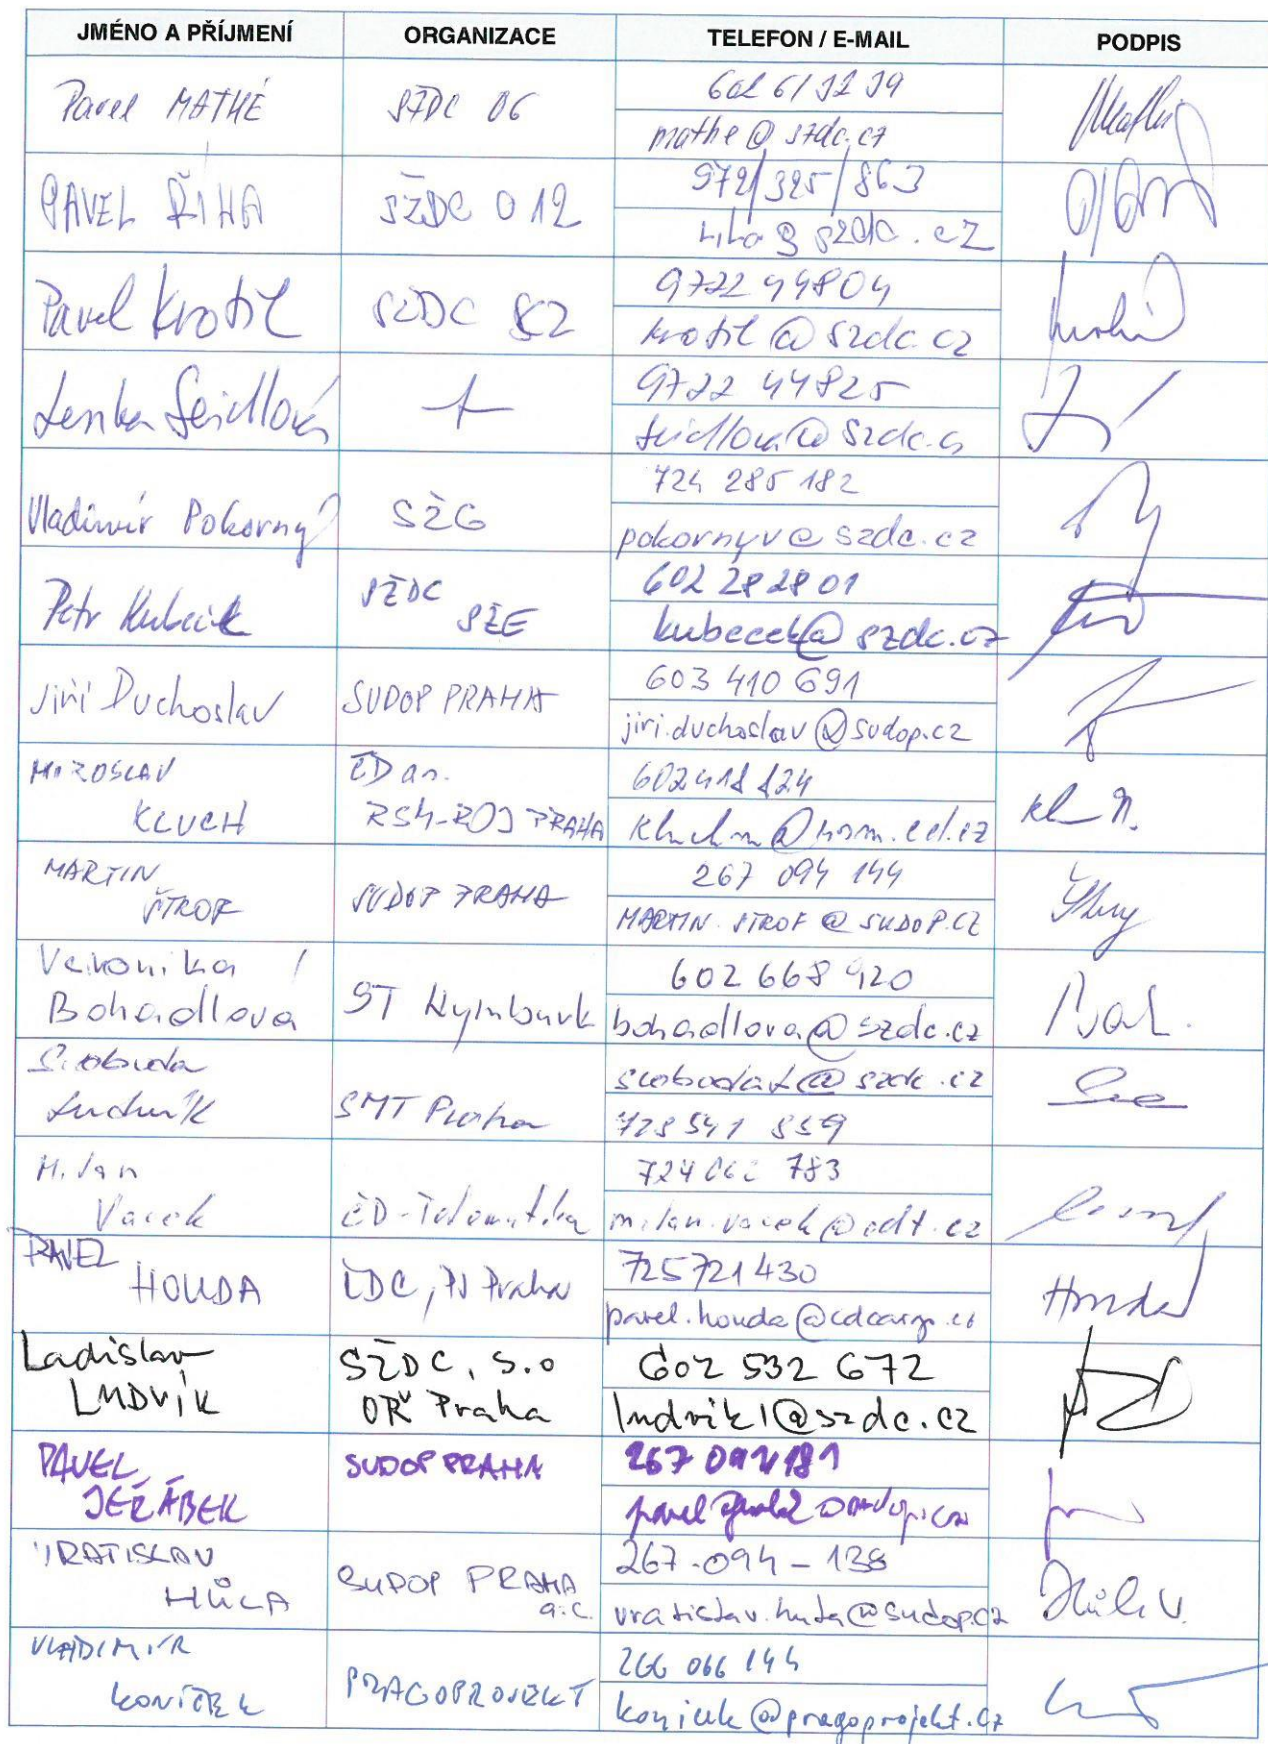 JMÉNO A PŘÍJMENÍ ORGANIZACE TELEFON / E-MAIL PODPIS
Pavel MATHÉ SŽDC 06
mathe@szdc.cz
PAVEL ŘÍHA SŽDC O12 972/325/863
riha@szdc.cz
Pavel Krotil SŽDC 972244804
krotil@szdc.cz
Lenka Seidlová 9722 44825
seidlova@szdc.cz
Vladimír Pokorný SŽG 724 285 182
pokornyv@szdc.cz
Petr Kubeček SŽDC SŽE 602 282801
kubecek@szdc.cz
Jiří Duchoslav SUDOP PRAHA 603 410 691
jiri.duchoslav@sudop.cz
MIROSLAV
KLUCH PRAHA
MARTIN
ŠTROF SUDOP PRAHA 267 094 144
MARTIN.STROF@SUDOP.CZ
Veronika
Bohadlová ST Nymburk 602 668 920
bohadlova@szdc.cz
Svoboda
Ludvík SMT Praha
Milan
Vacek ČD-Telematika milan.vacek@cdt.cz
PAVEL
HOUDA ČDC, PJ Praha 725721430
pavel.houda@cdcargo.cz Houda
Ladislav SŽDC, s.o 602 532 672
LUDVÍK OŘ Praha ludvikl@szdc.cz
PAVEL SUDOP PRAHA
JEŘÁBEK
VRATISLAV 267-094-138
HŮLA SUDOP PRAHA a.s. vratislav.hula@sudop.cz Hůla V.
VLADIMÍR
KONÍČEK PRAGOPROJEKT 266 066 144
konicek@pragoprojekt.cz